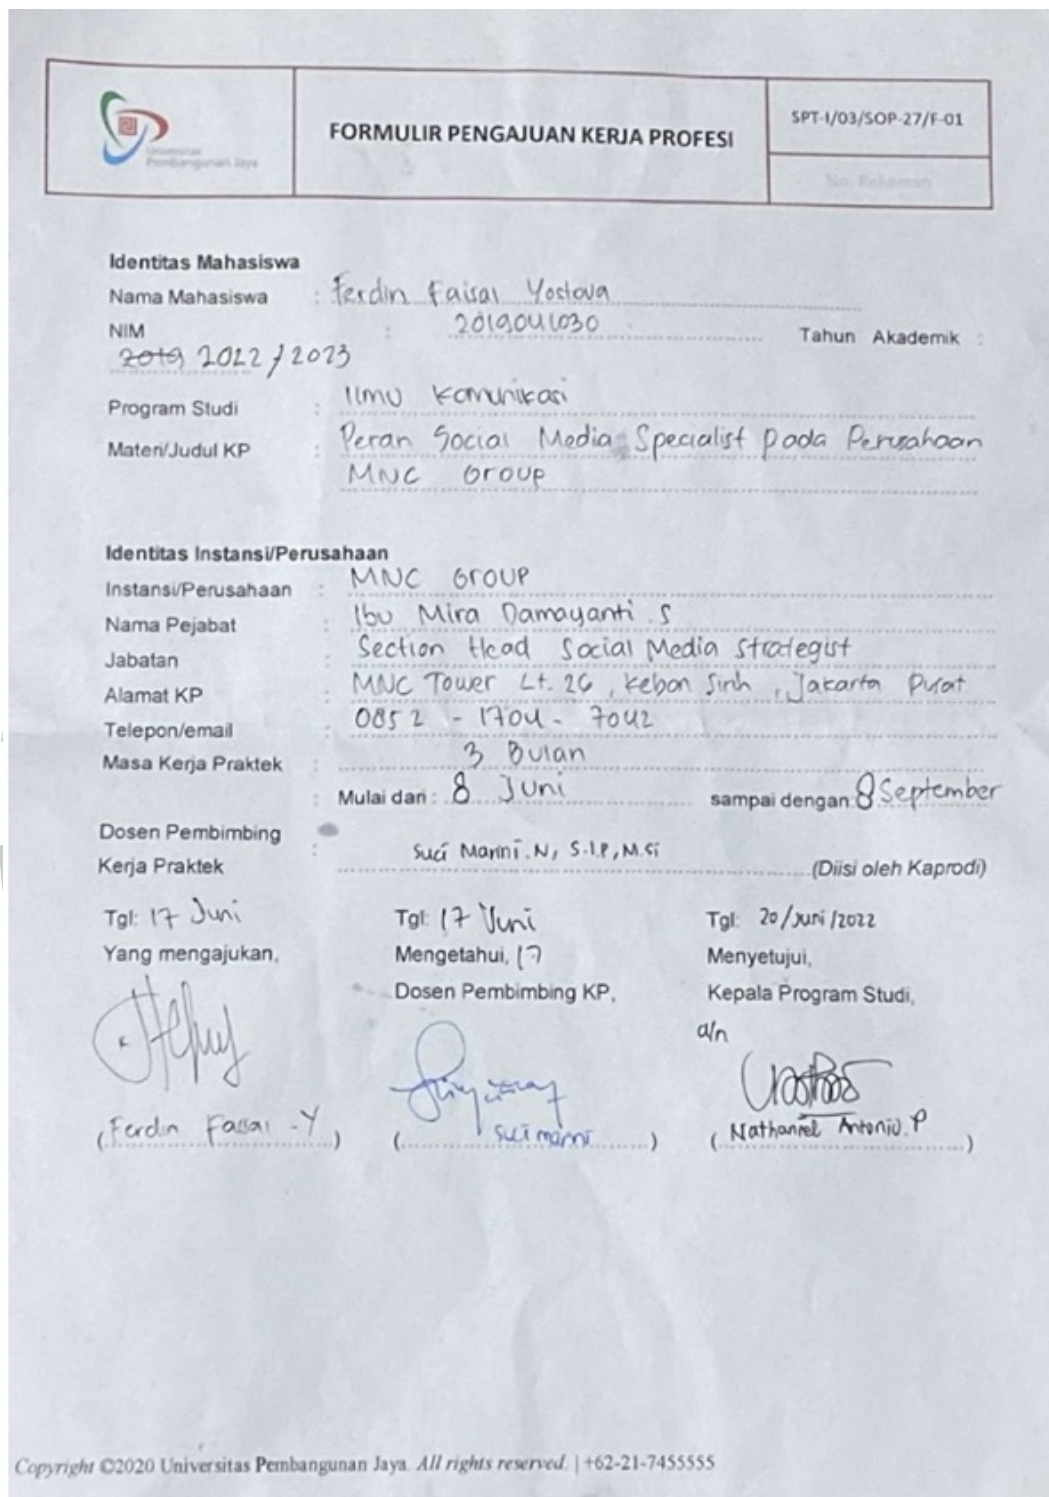 Universitas
Pembangunan Jaya
FORMULIR PENGAJUAN KERJA PROFESI
SPT-I/03/SOP-27/F-01
No. Rekaman
Identitas Mahasiswa
Nama Mahasiswa : Ferdin Faisal Yostova
NIM : 2019041030 Tahun Akademik :
2019 2022 / 2023
Program Studi : Ilmu Komunikasi
Materi/Judul KP : Peran Social Media Specialist pada Perusahaan
MNC Group
Identitas Instansi/Perusahaan
Instansi/Perusahaan : MNC GROUP
Nama Pejabat : Ibu Mira Damayanti . S
Jabatan : Section Head Social Media Strategist
Alamat KP : MNC Tower Lt. 26, Kebon Sirih, Jakarta Pusat
Telepon/email : 0852 - 1704 - 7042
Masa Kerja Praktek : 3 Bulan
: Mulai dari : 8 Juni sampai dengan: 8 September
Dosen Pembimbing
Kerja Praktek : Suci Marini. N, S.I.P, M.Si (Diisi oleh Kaprodi)
Tgl: 17 Juni Tgl: 17 Juni Tgl: 20/Juni/2022
Yang mengajukan, Mengetahui, 17 Menyetujui,
Dosen Pembimbing KP, Kepala Program Studi,
a/n
(Ferdin Faisal -Y) (Suci marini) (Nathaniel Antonio. P)
Copyright ©2020 Universitas Pembangunan Jaya. All rights reserved. | +62-21-7455555